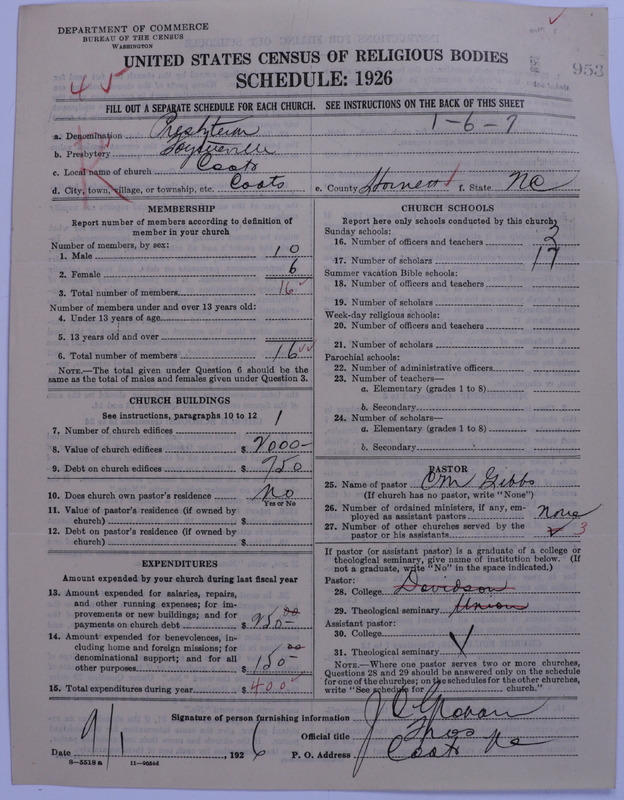 DEPARTMENT OF COMMERCE
BUREAU OF THE CENSUS
WASHINGTON
953
UNITED STATES CENSUS OF RELIGIOUS BODIES
SCHEDULE: 1926
FILL OUT A SEPARATE SCHEDULE FOR EACH CHURCH. SEE INSTRUCTIONS ON THE BACK OF THIS SHEET
1-6-7
a. Denomination
b. Presbytery
c. Local name of church Coats
d. City, town, village, or township, etc. Coats e. County f. State NC
MEMBERSHIP
Report number of members according to definition of
member in your church
Number of members, by sex:
1. Male 10
2. Female 6
3. Total number of members 16
Number of members under and over 13 years old:
4. Under 13 years of age
5. 13 years old and over
6. Total number of members 16
NOTE.—The total given under Question 6 should be the
same as the total of males and females given under Question 3.
CHURCH BUILDINGS
See instructions, paragraphs 10 to 12
7. Number of church edifices 1
8. Value of church edifices $ 2000-
9. Debt on church edifices $ 750
10. Does church own pastor's residence No
Yes or No
11. Value of pastor's residence (if owned by
church) $
12. Debt on pastor's residence (if owned by
church) $
EXPENDITURES
Amount expended by your church during last fiscal year
13. Amount expended for salaries, repairs,
and other running expenses; for im-
provements or new buildings; and for
payments on church debt $ 250 00
14. Amount expended for benevolences, in-
cluding home and foreign missions; for
denominational support; and for all
other purposes $ 150 00
15. Total expenditures during year $ 400
CHURCH SCHOOLS
Report here only schools conducted by this church
Sunday schools:
16. Number of officers and teachers 3
17. Number of scholars 17
Summer vacation Bible schools:
18. Number of officers and teachers
19. Number of scholars
Week-day religious schools:
20. Number of officers and teachers
21. Number of scholars
Parochial schools:
22. Number of administrative officers
23. Number of teachers—
a. Elementary (grades 1 to 8)
b. Secondary
24. Number of scholars—
a. Elementary (grades 1 to 8)
b. Secondary
PASTOR
25. Name of pastor Gibbs
(If church has no pastor, write "None")
26. Number of ordained ministers, if any, em-
ployed as assistant pastors None
27. Number of other churches served by the
pastor or his assistants 3
If pastor (or assistant pastor) is a graduate of a college or
theological seminary, give name of institution below. (If
not a graduate, write "No" in the space indicated.)
Pastor:
28. College Davidson
29. Theological seminary Union
Assistant pastor:
30. College
31. Theological seminary
NOTE.—Where one pastor serves two or more churches,
Questions 28 and 29 should be answered only on the schedule
for one of the churches; on the schedules for the other churches,
write "See schedule for church."
Signature of person furnishing information
Official title
Date 9/1, 1926 P. O. Address Coats NC
8-5518 a